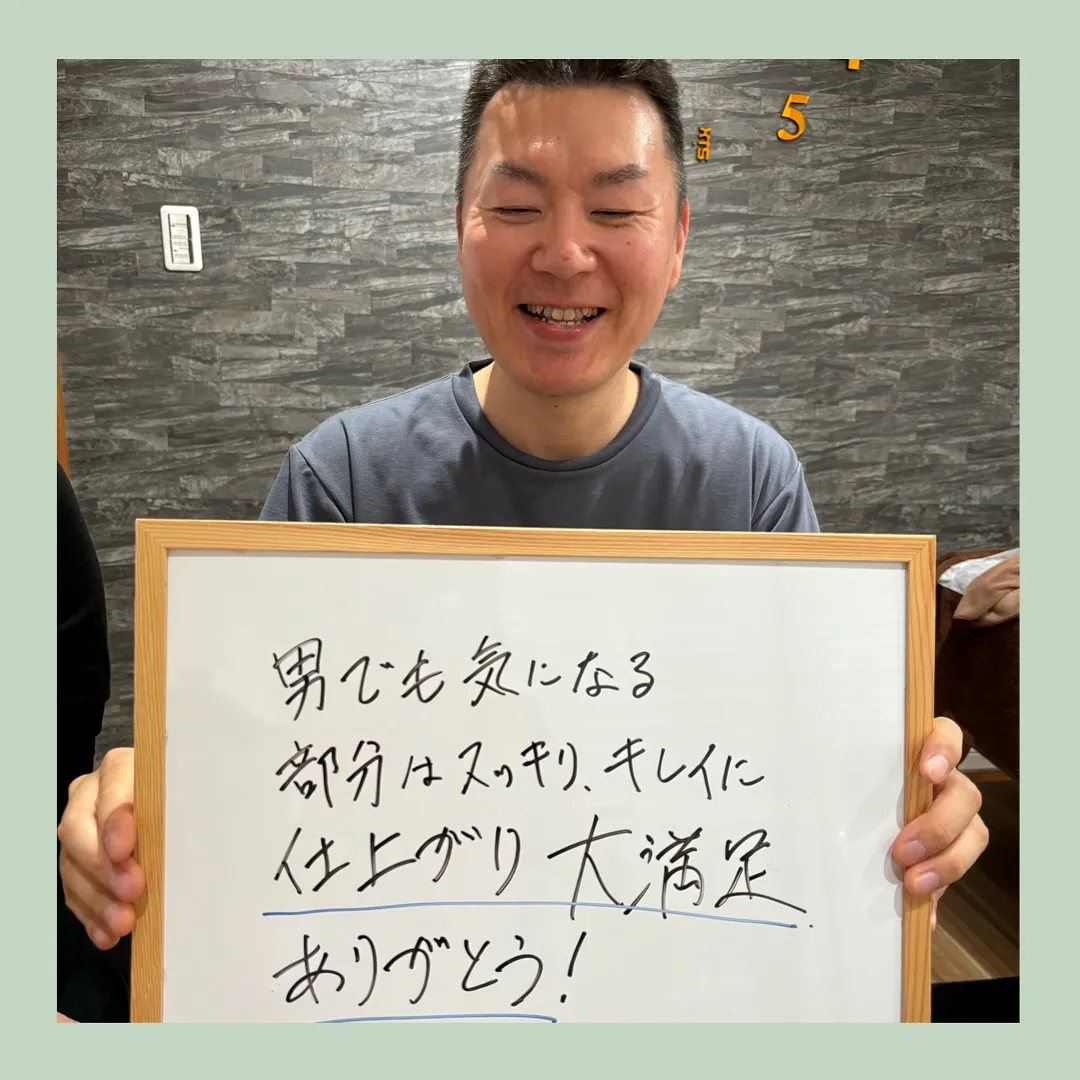 5
男でも気になる
部分はスッキリ、キレイに
仕上がり大満足.
ありがとう!